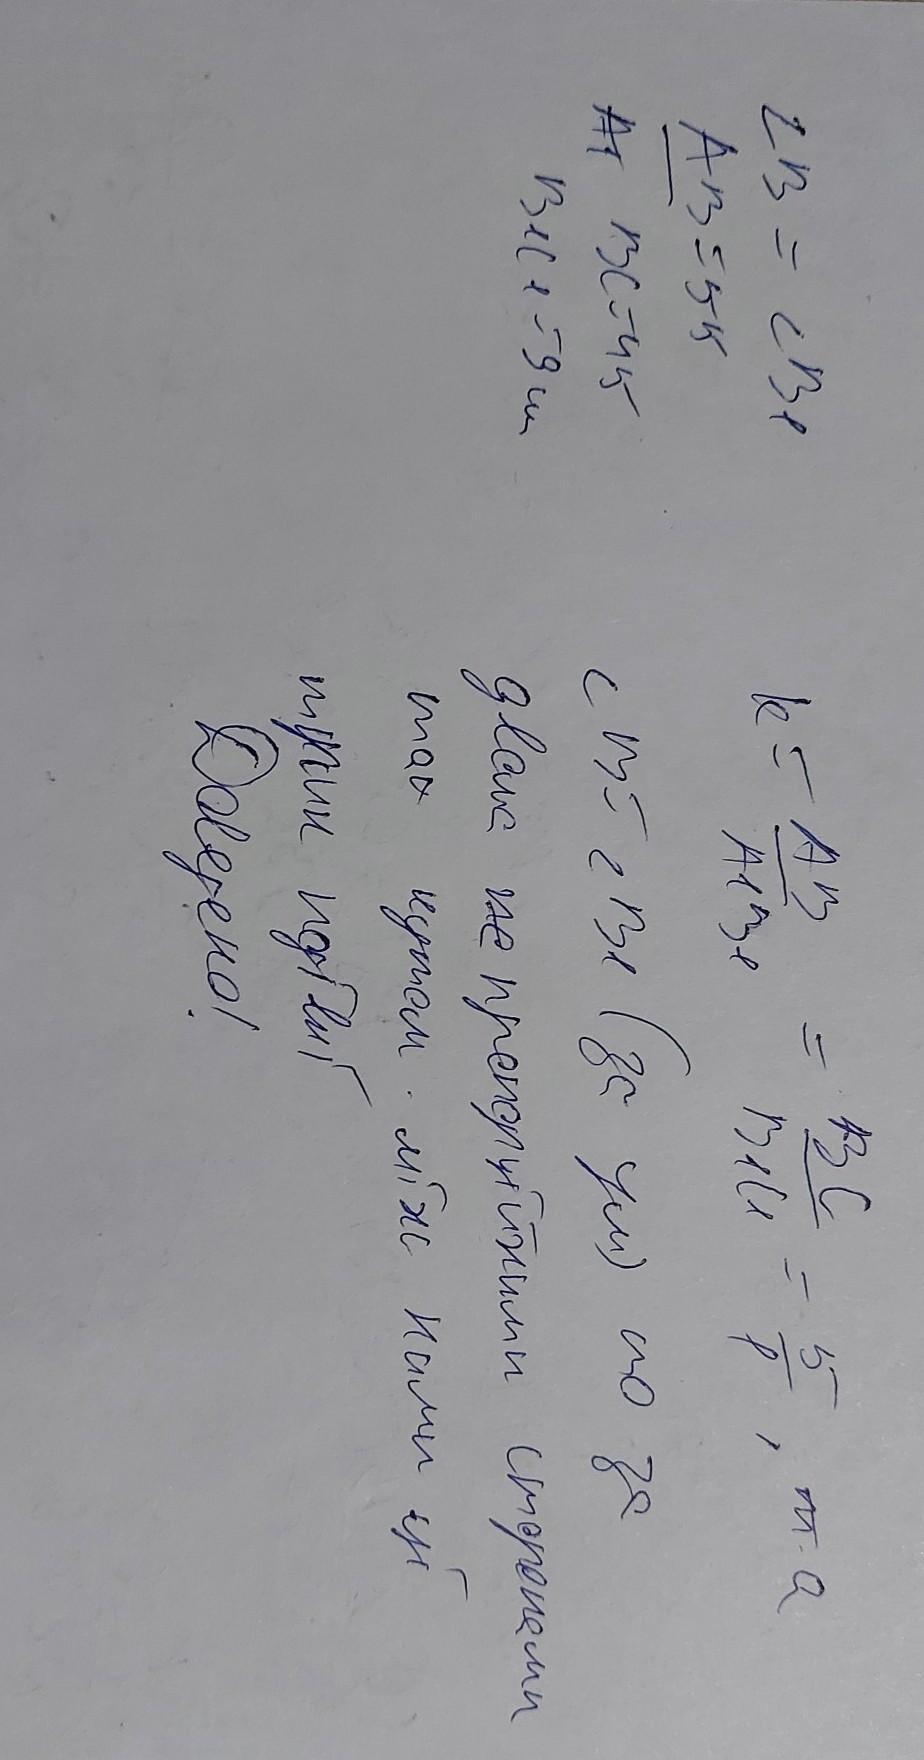 ∠B = ∠B1
AB = 55
A1 BC = 45
B1C1 = 9 см
k = AB/A1B1 = BC/B1C1 = 5/1, т.а
∠B = ∠B1 (за умо) то за
двома же пропорційними сторонами
та кутом між ними ці
трики подібні
Доведено!